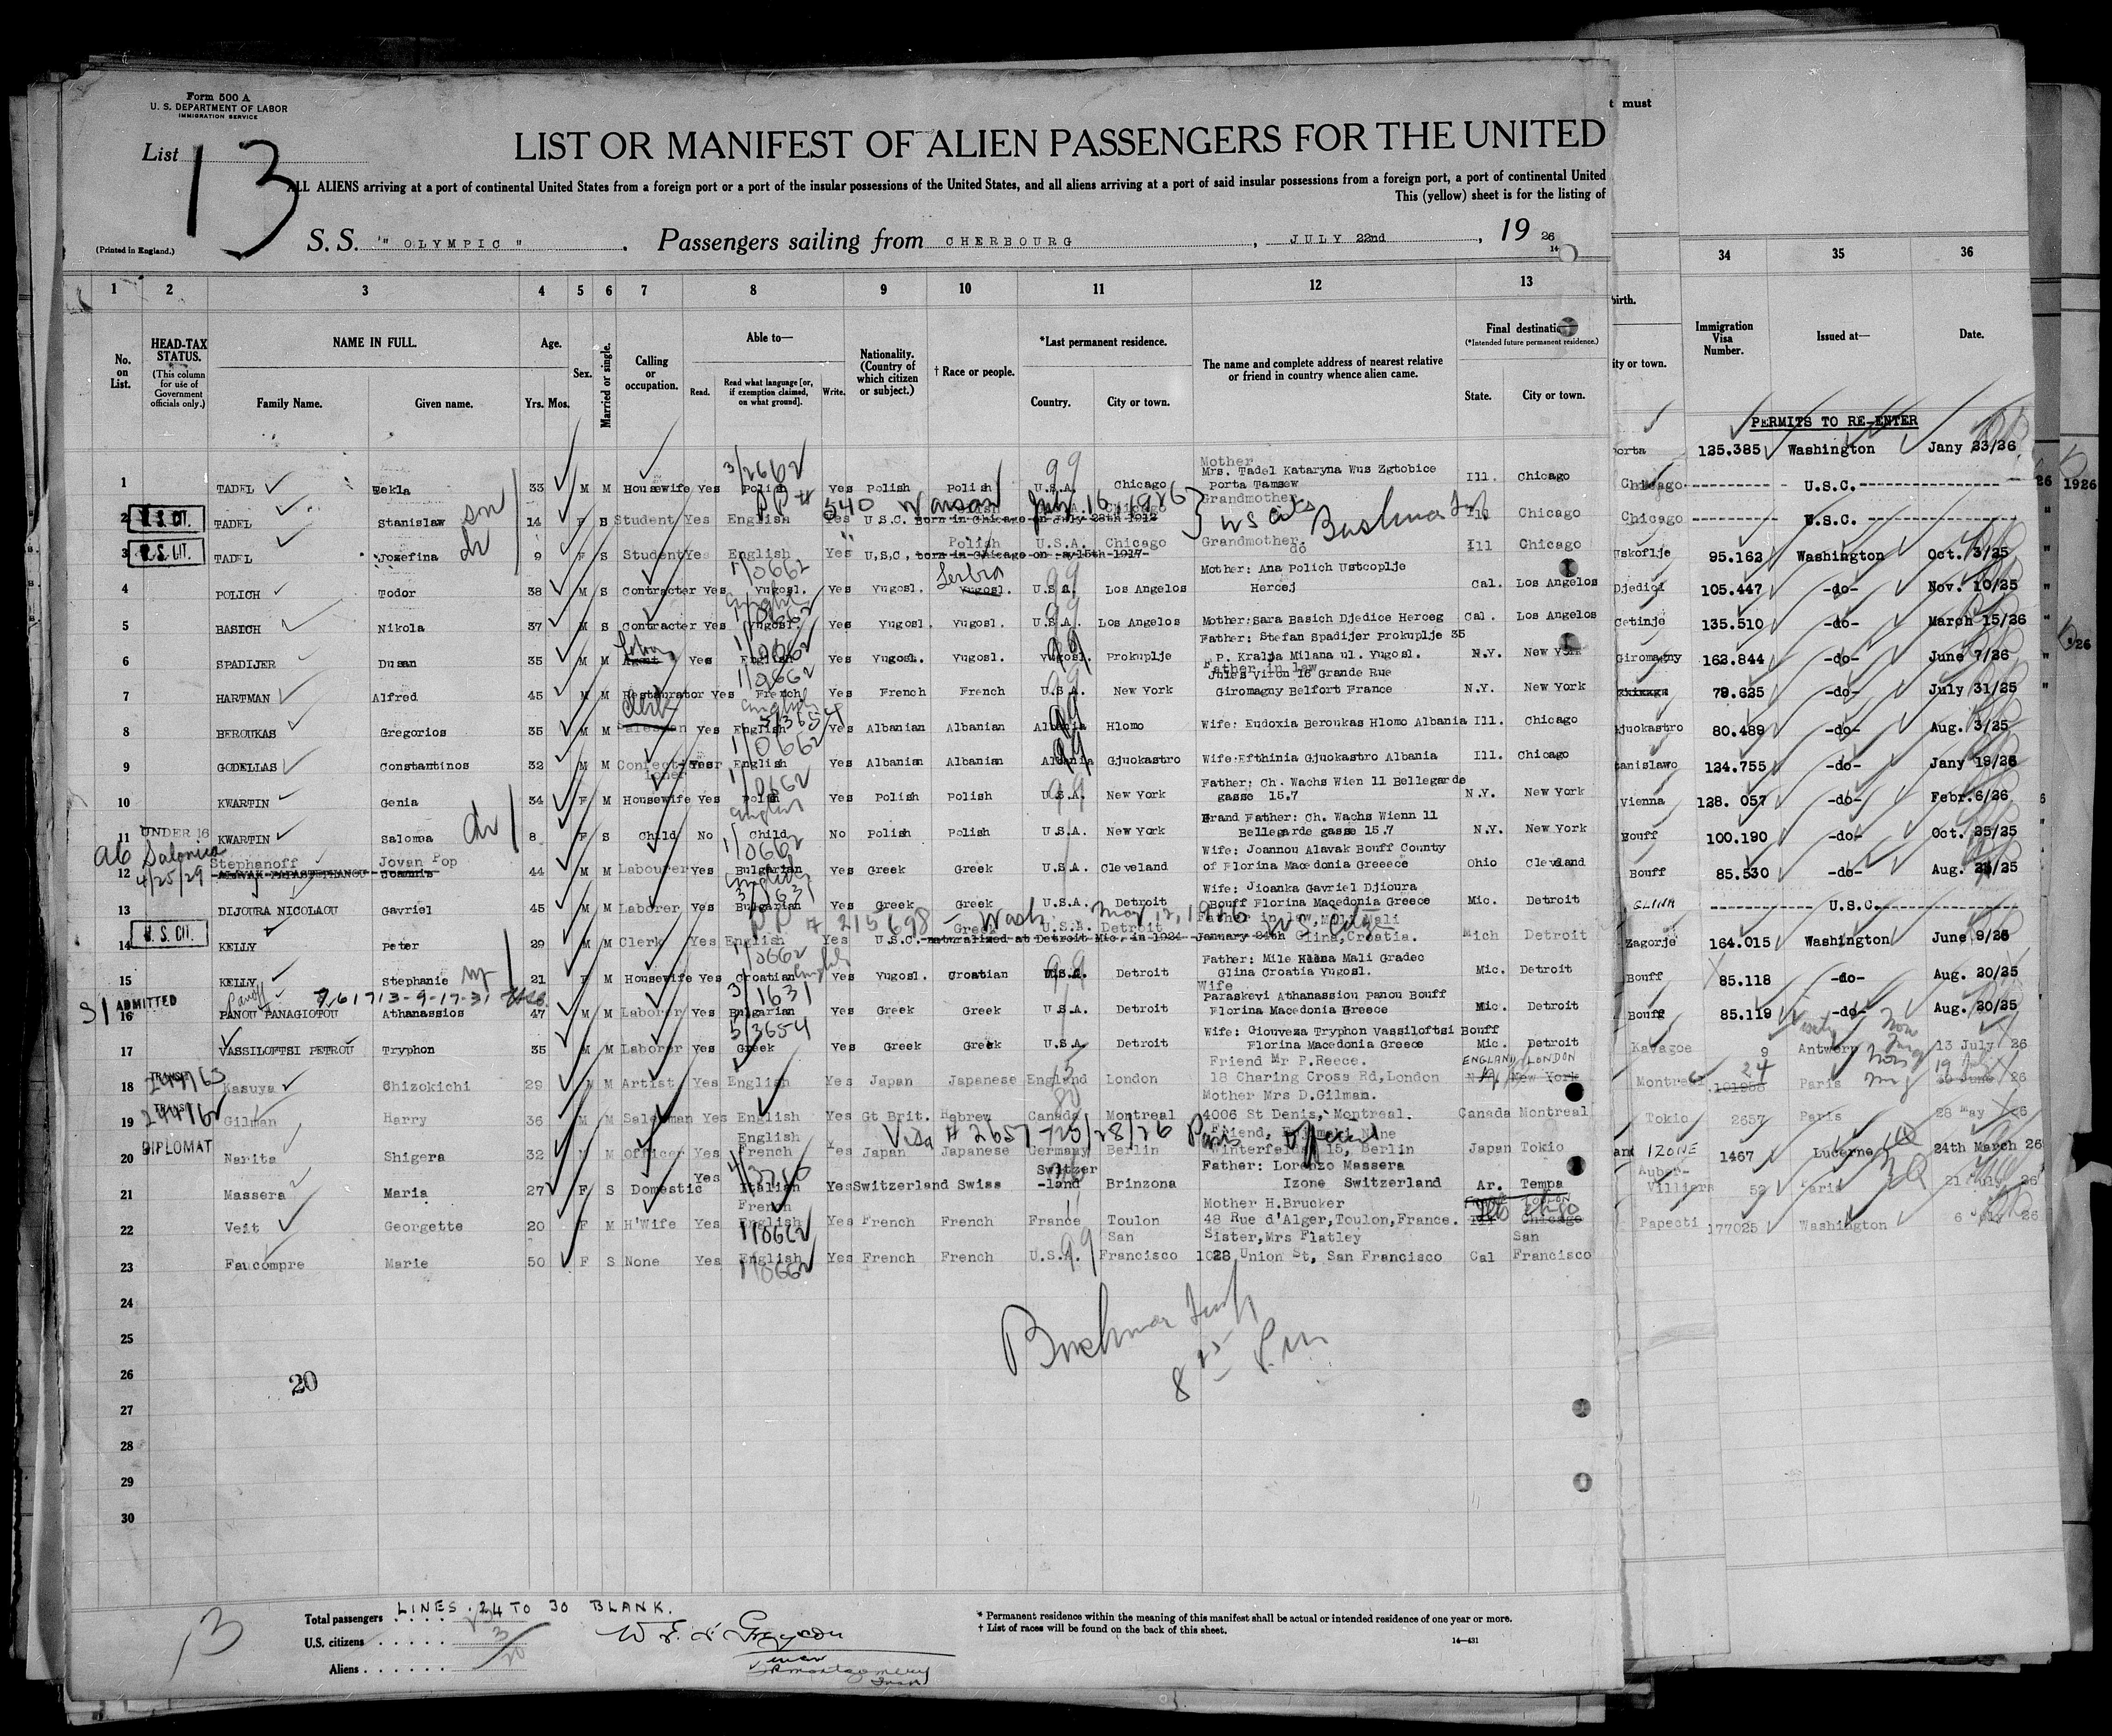 Form 500 A
U. S. DEPARTMENT OF LABOR
IMMIGRATION SERVICE
List 13
LIST OR MANIFEST OF ALIEN PASSENGERS FOR THE UNITED
ALL ALIENS arriving at a port of continental United States from a foreign port or a port of the insular possessions of the United States, and all aliens arriving at a port of said insular possessions from a foreign port, a port of continental United
This (yellow) sheet is for the listing of
(Printed in England.)
S. S. "OLYMPIC". Passengers sailing from CHERBOURG, JULY 22nd, 19 26
14
t must
1 2 3 4 5 6 7 8 9 10 11 12 13 34 35 36
No. on List.
HEAD-TAX STATUS. (This column for use of Government officials only.)
NAME IN FULL.
Family Name. Given name.
Age. Yrs. Mos.
Sex.
Married or single.
Calling or occupation.
Able to—
Read. Read what language [or, if exemption claimed, on what ground]. Write.
Nationality. (Country of which citizen or subject.)
† Race or people.
*Last permanent residence.
Country. City or town.
The name and complete address of nearest relative or friend in country whence alien came.
Final destination
(*Intended future permanent residence.)
State. City or town.
birth.
ity or town.
Immigration Visa Number.
Issued at—
Date.
PERMITS TO RE-ENTER
1 TADEL Tekla 33 M M Housewife Yes Polish Yes Polish Polish U.S.A. Chicago Mother Mrs. Tadel Kataryna Wus Zgtobice porta Tamsew Ill. Chicago
PP # 540 Warsaw July 16, 1926 } US Cits Bushman
2 U.S. CIT. TADEL Stanislaw sn 14 F S Student Yes English Yes U.S.C. Born in Chicago on July 28th 1912 Grandmother Ill Chicago
3 U.S. CIT. TADEL Jozefina dr 9 F S Student Yes English Yes U,S,C, born in Chicago on 15th-1917 Polish U.S.A. Chicago Grandmother do Ill Chicago
4 POLICH Todor 38 M S Contracter Yes Yugosl. Yes Yugosl. Yugosl. Serbia U.S.A. Los Angelos Mother: Ana Polich Ustcoplje Hercej Cal. Los Angelos
5 BASICH Nikola 37 M S Contracter Yes Yugosl. Yes Yugosl. Yugosl. U.S.A. Los Angelos Mother:Sara Basich Djedice Herceg Cal. Los Angelos
6 SPADIJER Dusan 35 M M Agent Yes English Yes Yugosl. Yugosl. Yugosl. Prokuplje Father: Stefan Spadijer Prokuplje 35 P. Kralja Milana ul. Yugosl. N.Y. New York
7 HARTMAN Alfred 45 M M Restaurator Yes French Yes French French U.S.A. New York Father in law Jules Viron 16 Grande Rue Giromagny Belfort France N.Y. New York
8 BEROUKAS Gregorios 35 M M Salesman Clerk Yes English Yes Albanian Albanian Albania Hlomo Wife: Eudoxia Beroukas Hlomo Albania Ill. Chicago
9 GODELLAS Constantinos 32 M M Confectioner Yes English Yes Albanian Albanian Albania Gjuokastro Wife:Efthinia Gjuokastro Albania Ill. Chicago
10 KWARTIN Genia 34 F M Housewife Yes Polish Yes Polish Polish U.S.A. New York Father: Ch. Wachs Wien 11 Bellegarde gasse 15.7 N.Y. New York
11 UNDER 16 KWARTIN Salomea dr 8 F S Child No Child No Polish Polish U.S.A. New York Grand Father: Ch. Wachs Wienn 11 Bellegarde gasse 15.7 N.Y. New York
ab Salonica
12 4/25/29 Stephanoff Jovan Pop ALAVAK PAPASTEPHANOU Joannis 44 M M Labourer yes Bulgarian Yes Greek Greek U.S.A. Cleveland Wife: Joannou Alavak Bouff County of Florina Macedonia Greeece Ohio Cleveland
13 DIJOURA NICOLAOU Gavriel 45 M M Laborer Yes Bulgarian Yes Greek Greek U.S.A. Detroit Wife: Jioanka Gavriel Djioura Bouff Florina Macedonia Greece Mic. Detroit
PP # 215698 - Wash. May 12, 1926 US Citz
14 U.S. CIT. KELLY Peter 29 M M Clerk Yes English Yes U.S.C. naturalized at Detroit Mic. in 1924 January 24th Greek U.S.A. Detroit Father in law, Mile Mali Glina,Croatia. Mich Detroit
15 KELLY Stephanie wf 21 F M Housewife Yes Croatian Yes Yugosl. Croatian U.S.A. Detroit Father: Mile Klena Mali Gradec Glina Croatia Yugosl. Mic. Detroit
SI ADMITTED
16 Panoff 7,61713-9-17-31 PANOU PANAGIOTOU Athanassios 47 M M Laborer Yes Bulgarian Yes Greek Greek U.S.A. Detroit Wife Paraskevi Athanassiou Panou Bouff Florina Macedonia Greece Mic. Detroit
17 VASSILOFTSI PETROU Tryphon 35 M M Laborer Yes Greek Yes Greek Greek U.S.A Detroit Wife: Giouveza Tryphon Vassiloftsi Bouff Florina Macedonia Greece Mic. Detroit
18 TRANSIT Kasuya Chizokichi 29 M M Artist Yes English Yes Japan Japanese England London Friend Mr P.Reece. 18 Charing Cross Rd,London ENGLAND LONDON N.Y. New York
19 TRANSIT Gilman Harry 36 M M Salesman Yes English Yes Gt Brit. Hebrew Canada Montreal Mother Mrs D.Gilman. 4006 St Denis, Montreal. Canada Montreal
Visa # 2657 725/28/26 Paris Official
20 DIPLOMAT Narita Shigera 32 M M Officer Yes English French Yes Japan Japanese Germany Berlin Friend, Winterfeldst 15, Berlin Japan Tokio
21 Massera Maria 27 F S Domestic Yes Italian Yes Switzerland Swiss Switzer-land Brinzona Father: Lorenzo Massera Izone Switzerland Ar. Tempa
22 Veit Georgette 20 F M H'Wife Yes French English Yes French French France Toulon Mother H.Brucker 48 Rue d'Alger,Toulon,France. Chicago
23 Faucompre Marie 50 F S None Yes English Yes French French U.S.A. San Francisco Sister,Mrs Flatley 1028 Union St, San Francisco Cal San Francisco
24
25
26
27
28
29
30
20
8 25 P.M.
porta 125.385 Washington Jany 23/26
Chicago U.S.C.
Chicago U.S.C.
Uskoflje 95.162 Washington Oct. 3/25
Djedici 105.447 -do- Nov. 10/25
Cetinje 135.510 -do- March 15/26
Giromagny 162.844 -do- June 7/26
79.625 -do- July 31/25
Gjuokastro 80.489 -do- Aug. 3/25
tanislawo 124.755 -do- Jany 19/26
Vienna 128. 057 -do- Febr.6/26
Bouff 100.190 -do- Oct. 25/25
Bouff 85.530 -do- Aug. 25/25
GLINA U.S.C.
Zagorje 164.015 Washington June 9/26
Bouff 85.118 -do- Aug. 20/25
Bouff 85.119 -do- Aug. 20/25
Kavagoe 9 Antwerp 13 July 26
Montreal 24 Paris 26
Tokio 2657 Paris 28 May 26
and IZONE 1467 Lucerne 24th March 26
Auber-Villiers 52 Paris 21 July 26
Papeeti 177025 Washington 6 July 26
13
LINES. 24 TO 30 BLANK.
Total passengers . . . .
U.S. citizens . . . . . 3
Aliens . . . . . . 20
* Permanent residence within the meaning of this manifest shall be actual or intended residence of one year or more.
† List of races will be found on the back of this sheet.
14—431